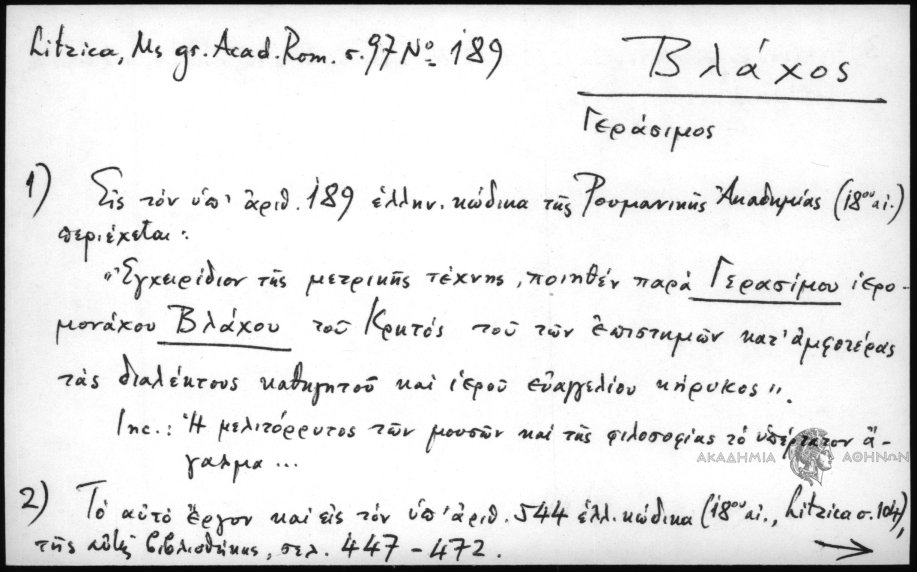 Litzica, Ms gr. Acad. Rom. σ. 97 Nο 189
Βλάχος
Γεράσιμος
1) Εἰς τὸν ὑπ' ἀριθ. 189 ἑλλην. κώδικα τῆς Ρουμανικῆς Ἀκαδημίας (18ου αἰ.)
περιέχεται:
"Ἐγχειρίδιον τῆς μετρικῆς τέχνης, ποιηθὲν παρὰ Γερασίμου ἱερο-
μονάχου Βλάχου τοῦ Κρητός τοῦ τῶν ἐπιστημῶν κατ' ἀμφοτέρας
τὰς διαλέκτους καθηγητοῦ καὶ ἱεροῦ εὐαγγελίου κήρυκος".
Inc.: Ἡ μελιτόρρυτος τῶν μουσῶν καὶ τῆς φιλοσοφίας τὸ ὑπέρτατον ἄ-
γαλμα ...
ΑΚΑΔΗΜΙΑ ΑΘΗΝΩΝ
2) Τὸ αὐτὸ ἔργον καὶ εἰς τὸν ὑπ' ἀριθ. 544 ἑλλ. κώδικα (18ου αἰ., Litzica σ. 104),
τῆς αὐτῆς βιβλιοθήκης, σελ. 447-472.